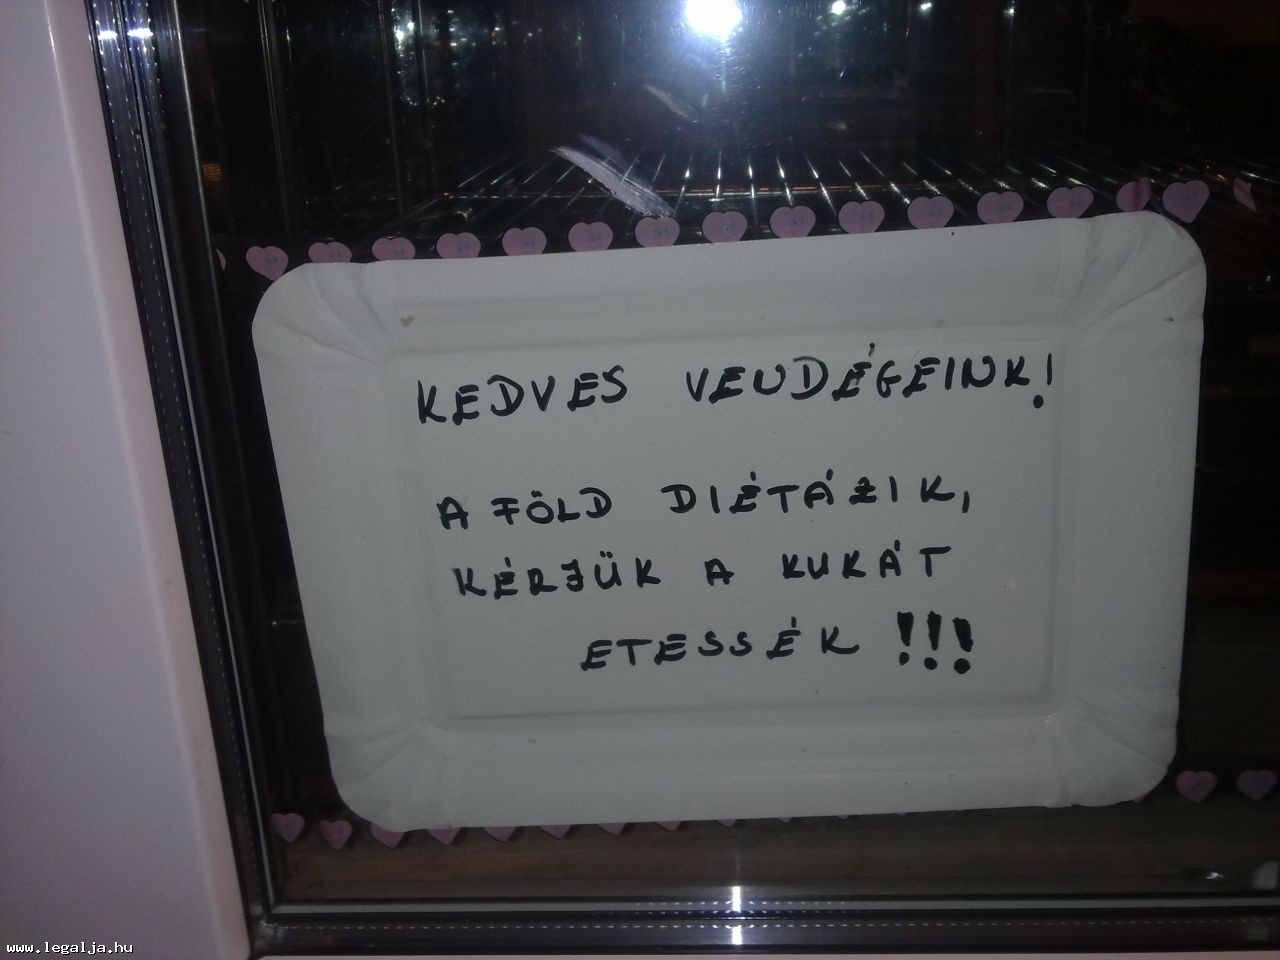 KEDVES VENDÉGEINK!
A FÖLD DIÉTÁZIK,
KÉRJÜK A KUKÁT
ETESSÉK !!!
www.legalja.hu